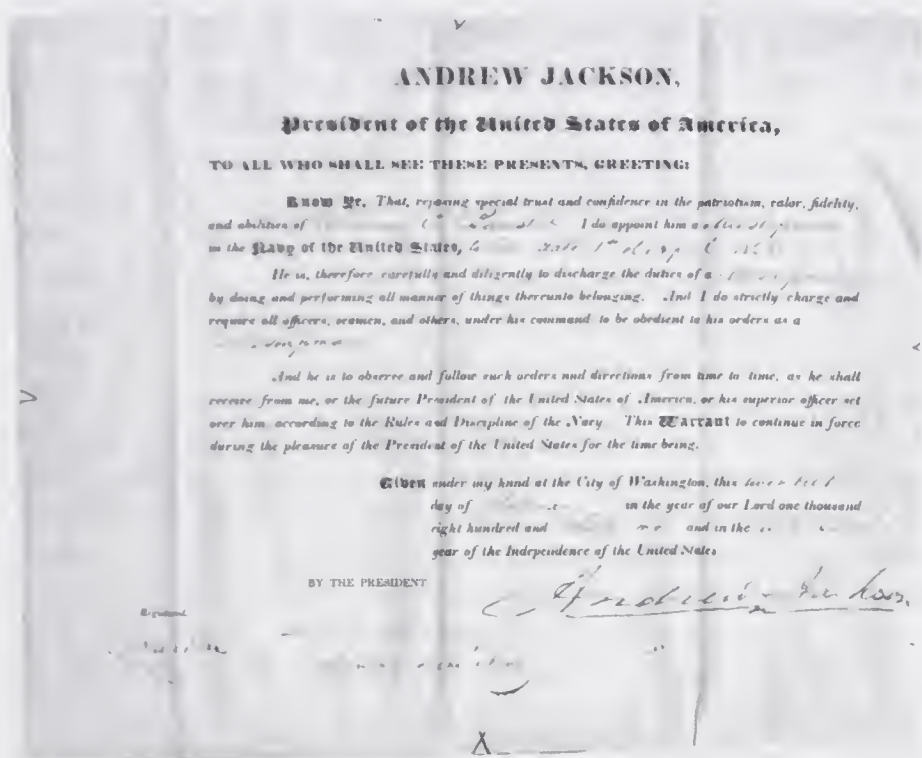 ANDREW JACKSON,
President of the United States of America,
TO ALL WHO SHALL SEE THESE PRESENTS, GREETING:
Know Ye, That, reposing special trust and confidence in the patriotism, valor, fidelity,
and abilities of I do appoint him a
in the Navy of the United States,
He is, therefore carefully and diligently to discharge the duties of a
by doing and performing all manner of things thereunto belonging. And I do strictly charge and
require all officers, seamen, and others, under his command to be obedient to his orders as a
And he is to observe and follow such orders and directions from time to time, as he shall
receive from me, or the future President of the United States of America, or his superior officer set
over him according to the Rules and Discipline of the Navy. This Warrant to continue in force
during the pleasure of the President of the United States for the time being.
Given under my hand at the City of Washington, this
day of in the year of our Lord one thousand
eight hundred and and in the
year of the Independence of the United States
BY THE PRESIDENT
Andrew Jackson
Registered